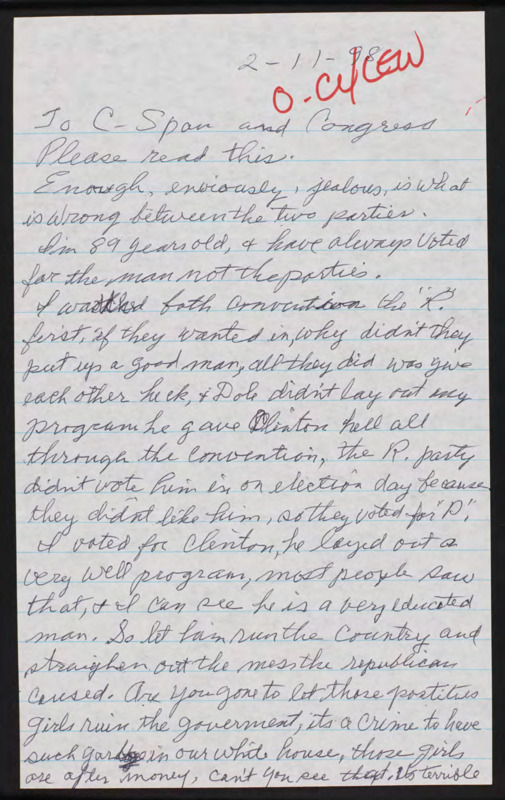 2-11-98
O-CM/CEW
To C-Span and Congress
Please read this.
Enough, enviously, jealous, is what
is wrong between the two parties.
I'm 89 years old, & have always voted
for the man not the parties.
I watched both convention the "R."
first, if they wanted in, why didn't they
put up a good man, all they did was give
each other heck, & Dole didn't lay out any
program he gave Clinton hell all
through the convention, the R. party
didn't vote him in on election day because
they didn't like him, so they voted for "D".
I voted for Clenton, he layed out a
very well program, most people saw
that, & I can see he is a very educated
man. So let him run the Country and
straighen out the mess the republican
caused. Are you gone to let those postitues
girls ruin the goverment, its a crime to have
such garbage in our white house, those girls
are after money, can't you see that, its terrible